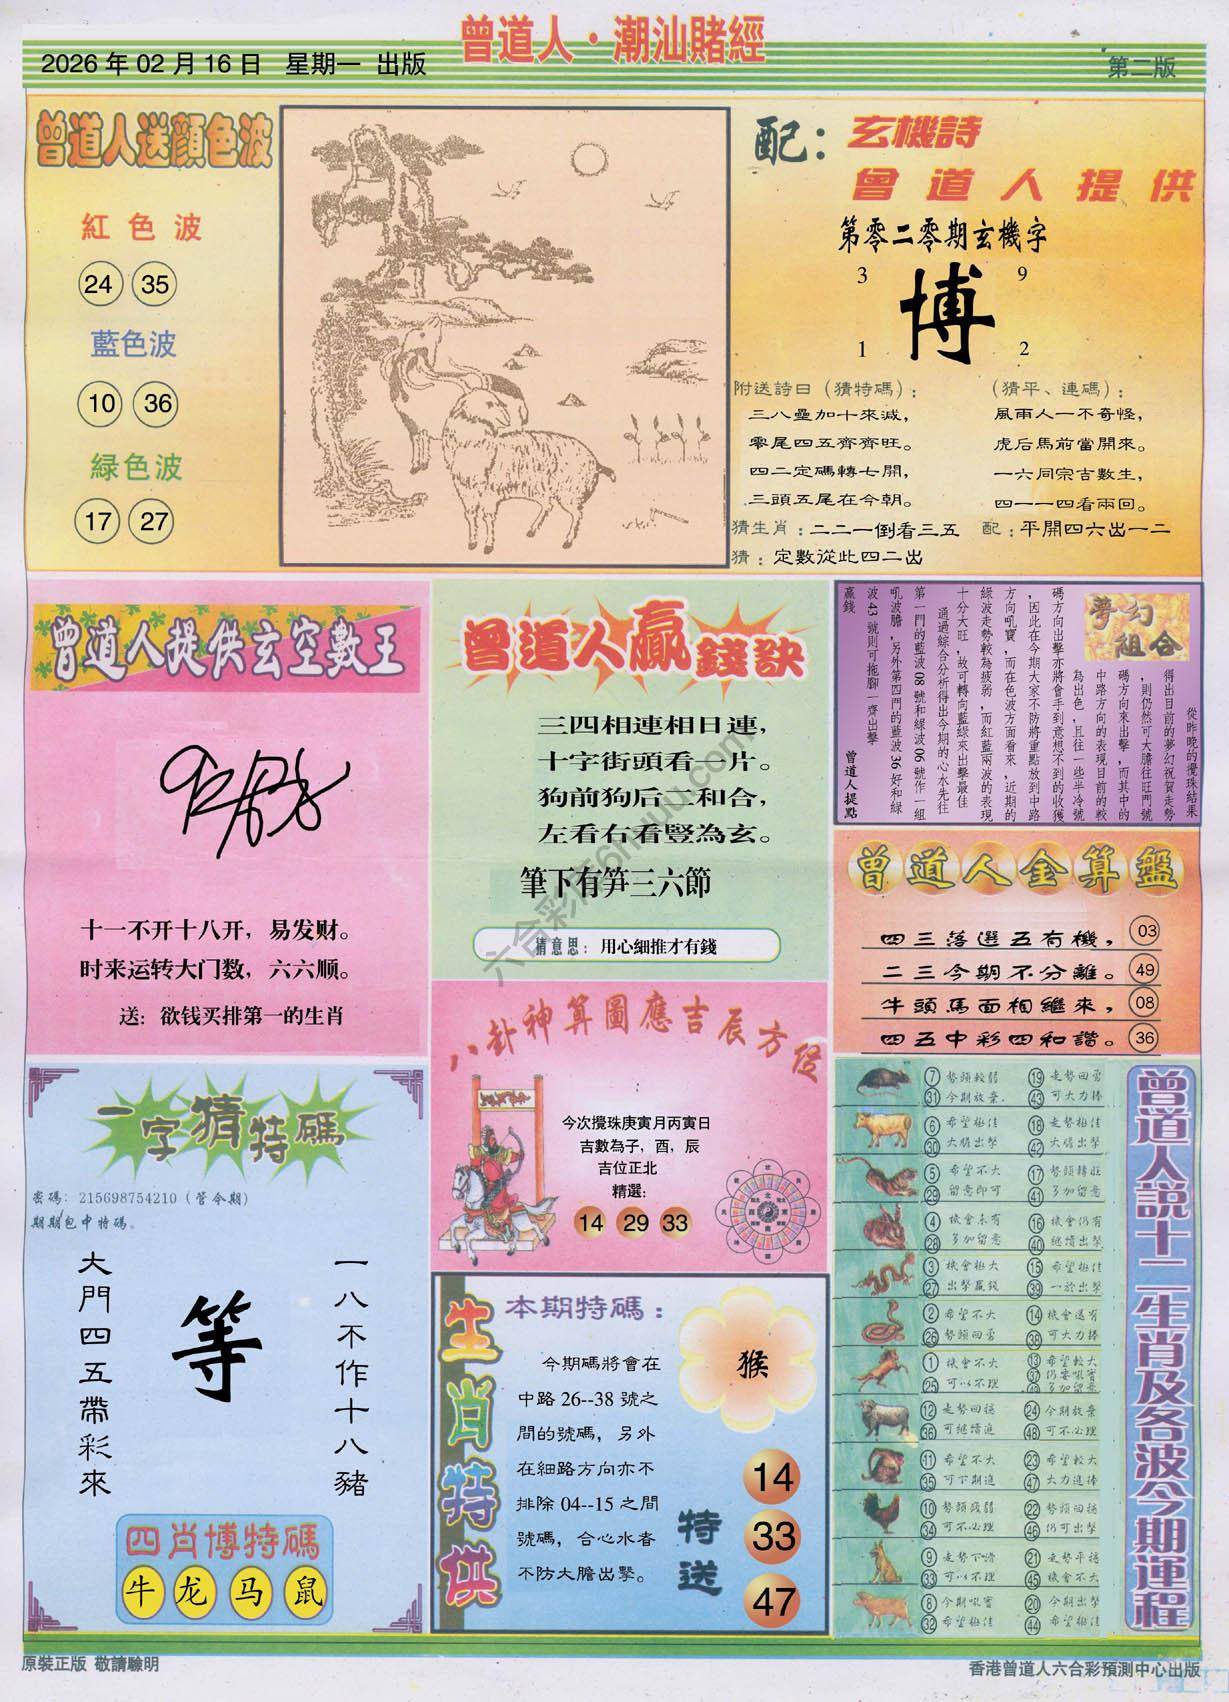 曾道人·潮汕賭經
2026年02月16日 星期一 出版
第二版
曾道人送顏色波
紅色波
24 35
藍色波
10 36
緑色波
17 27
配：玄機詩
曾道人提供
第零二零期玄機字
3 9
博
1 2
附送詩曰（猜特碼）：
三八壘加十來減，
零尾四五齊齊旺。
四二定碼轉七開，
三頭五尾在今朝。
（猜平、連碼）：
風雨人一不奇怪，
虎后馬前當開來。
一六同宗吉數生，
四一一四看兩回。
猜生肖：二二一倒看三五
配：平開四六出一二
猜：定數從此四二出
曾道人提供玄空數王
十一不开十八开，易发财。
时来运转大门数，六六顺。
送：欲钱买排第一的生肖
曾道人贏錢訣
三四相連相日連，
十字街頭看一片。
狗前狗后二和合，
左看右看豎為玄。
筆下有笋三六節
猜意思：用心細推才有錢
夢幻組合
從昨晚的攪珠結果
得出目前的夢幻祝賀走勢
，則仍然可大膽往旺門號
碼方向來出擊，而其中的
中路方向的表現目前的較
為出色，且往一些半冷號
碼方向出擊亦將會手到意想不到的收獲
，因此在今期大家不防將重點放到中路
方向吼寶，而在色波方面看來，近期的
綠波走勢較為疲弱，而紅藍兩波的表現
十分大旺，故可轉向藍綠來出擊最佳
通過綜合分析得出今期的心水先往
第一門的藍波08號和綠波06號作一組
吼波膽，另外第四門的藍波36好和綠
波43號則可拖腳一齊出擊
贏錢
曾道人提點
曾道人金算盤
四三落選五有機， 03
二三今期不分離。 49
牛頭馬面相繼來， 08
四五中彩四和諧。 36
八卦神算圖應吉辰方位
今次攪珠庚寅月丙寅日
吉數為子，酉，辰
吉位正北
精選：
14 29 33
一字猜特碼
密碼：215698754210（管令期）
期期包中特碼。
大門四五帶彩來
等
一八不作十八豬
四肖博特碼
牛 龙 马 鼠
生肖特供
本期特碼：
今期碼將會在
中路26--38號之
間的號碼，另外
在細路方向亦不
排除04--15之間
號碼，合心水者
不防大膽出擊。
猴
特送
14
33
47
曾道人説十二生肖及各波今期運程
⑦ 勢頭較弱 ⑲ 走勢回勇
㉛ 今期放棄. ㊸ 可大力捧
⑥ 希望極佳 ⑱ 走勢極佳
㉚ 大膽出擊 ㊷ 大膽出擊
⑤ 希望不大 ⑰ 勢頭轉旺
㉙ 留意即可 ㊶ 多加留意
④ 機會未有 ⑯ 機會仍有
㉘ 多加留意 ㊵ 継續出擊
③ 機會極大 ⑮ 希望極佳
㉗ 出擊贏錢 ㊴ 一於出擊
② 希望不大 ⑭ 機會還有
㉖ 勢頭回勇 ㊳ 可大力捧
① 機會不大 ⑬ 希望較大
㉕ 可以不理 ㊲ 仍要吼實
㊾ 多加留意
⑫ 走勢回穩 ㉔ 今期放棄
㊱ 可継續追 ㊽ 可不必理
⑪ 希望不大 ㉓ 希望較大
㉟ 可下期追 ㊼ 大力追捧
⑩ 勢頭疲弱 ㉒ 勢頭回穩
㉞ 可不必理 ㊻ 仍可出擊
⑨ 走勢下滑 ㉑ 走勢平穩
㉝ 可以不理 ㊺ 機會不大
⑧ 今期吼實 ⑳ 今期出擊
㉜ 希望極佳 ㊹ 希望極佳
原裝正版 敬請驗明
香港曾道人六合彩預測中心出版